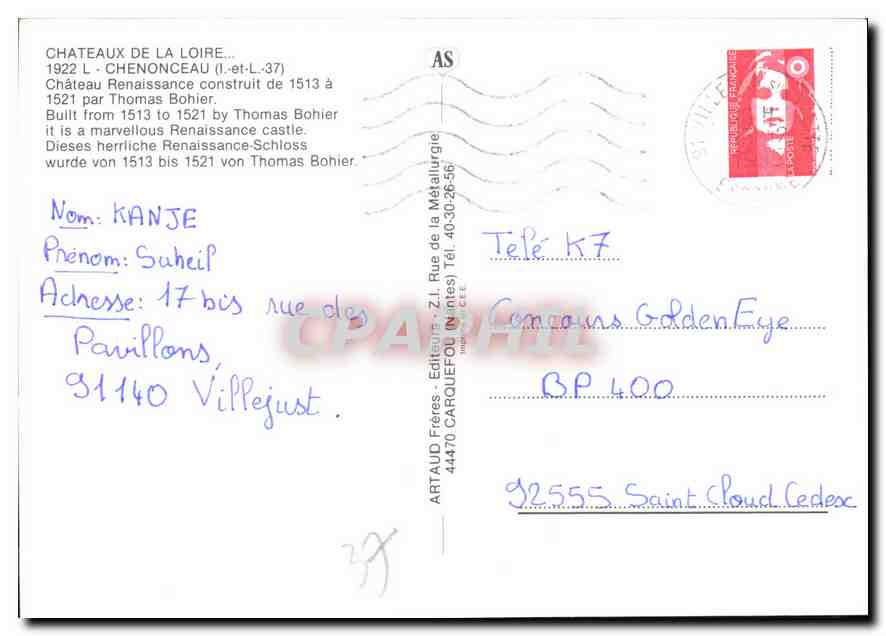 CHATEAUX DE LA LOIRE...
1922 L - CHENONCEAU (I.-et-L.-37)
Château Renaissance construit de 1513 à
1521 par Thomas Bohier.
Built from 1513 to 1521 by Thomas Bohier
it is a marvellous Renaissance castle.
Dieses herrliche Renaissance-Schloss
wurde von 1513 bis 1521 von Thomas Bohier.
Nom: KANJE
Prénom: Suheil
Adresse: 17 bis rue des
Pavillons,
91140 Villejust.
37
AS
ARTAUD Frères - Editeurs - Z.I. Rue de la Métallurgie
44470 CARQUEFOU (Nantes) Tél. 40-30-26-56
CPAPHIL
REPUBLIQUE FRANÇAISE
LA POSTE
Télé K7
Concours GoldenEye
BP 400
92555 Saint Cloud Cedex